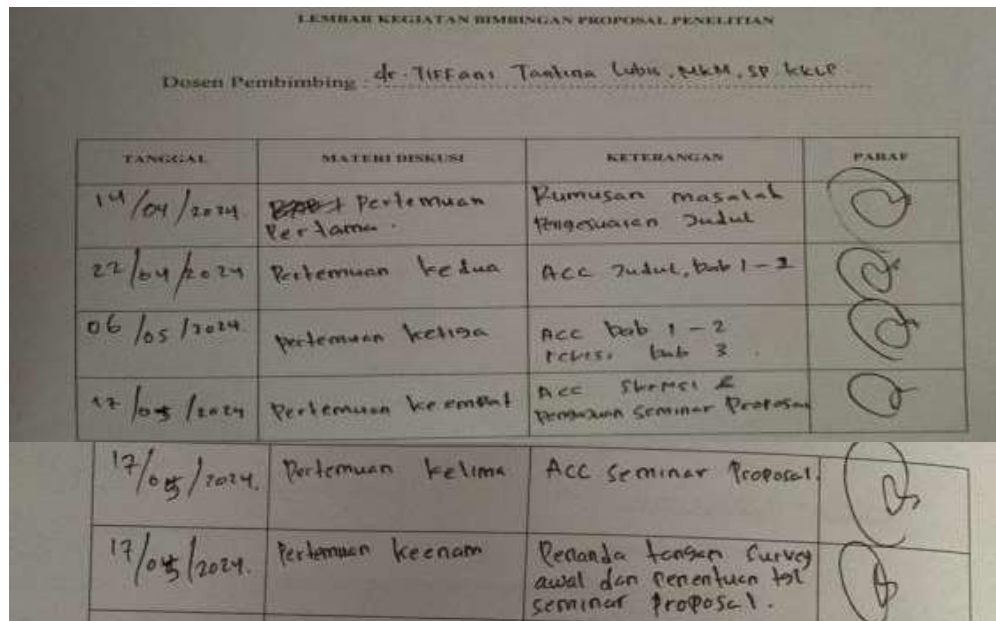 LEMBAR KEGIATAN BIMBINGAN PROPOSAL PENELITIAN
Dosen Pembimbing : dr. Tiffani Tantina Lubis, MKM, SP. KKLP
TANGGAL MATERI DISKUSI KETERANGAN PARAF
14/04/2024 Pertemuan Rumusan masalah
Pertama. Pengesuaian Judul
22/04/2024 Pertemuan kedua ACC Judul, bab 1-2
06/05/2024 Pertemuan ketiga ACC bab 1-2
revisi bab 3.
17/05/2024 Pertemuan keempat Acc Skripsi &
Pengajuan Seminar Proposal
17/05/2024. Pertemuan kelima ACC seminar Proposal.
17/05/2024. Pertemuan keenam Penanda tangan Survey
awal dan Penentuan tgl
seminar Proposal.